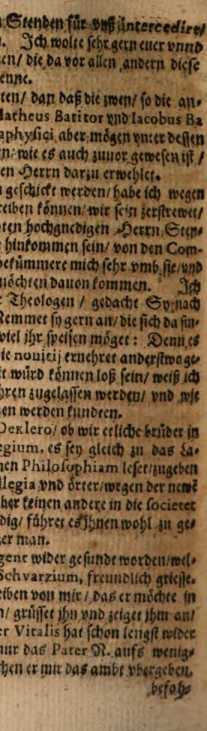 Stenden für vnß intercedire/
. Ich wolte sehr gern euer vnnd
en/ die da vor allen andern diese
enne.
ten/ dan daß die zwen/ so die an-
Matheus Batitor vnd Iacobus Ba
aphysici aber mögen vnter dessen
n/ wie es auch zuuor gewesen ist/
en Herrn darzu erwehlet.
geschickt werden/ habe ich wegen
eiben können/ wir sein zerstrewet/
ten hochgnedigen Herrn Sten-
hinkommen sein/ von den Com-
bekümmere mich sehr vmb sie/ vnd
möchten dauon kommen. Ich
Theologen/ gedacht Synach
Remmet sy gern an/ die sich da sin-
viel jhr speisen möget: Denn es
ie nouitij ernehret anderstwo ge-
t würd können loß sein/ weiß ich
hren zugelassen werden/ vnd wie
en werden kundten.
Deklero/ ob wir etliche brüder in
egium, es sey gleich zu das La-
nen Philosophiam leset/ zugeben
llegia vnd örter/ wegen der newē
her keinen andere in die societet
dig/ führet es jhnen wohl zu ge-
er man.
gent wider gesundt worden/ wel-
Schvarzium, freundlich griesse-
eiben von mir/ das er möchte in
n/ grüsset jhn vnd zeiget jhm an/
er Vitalis hat schon lengst wider
nur das Pater N. auffs wenig-
chen er mir das ambt vbergeben,
befah-